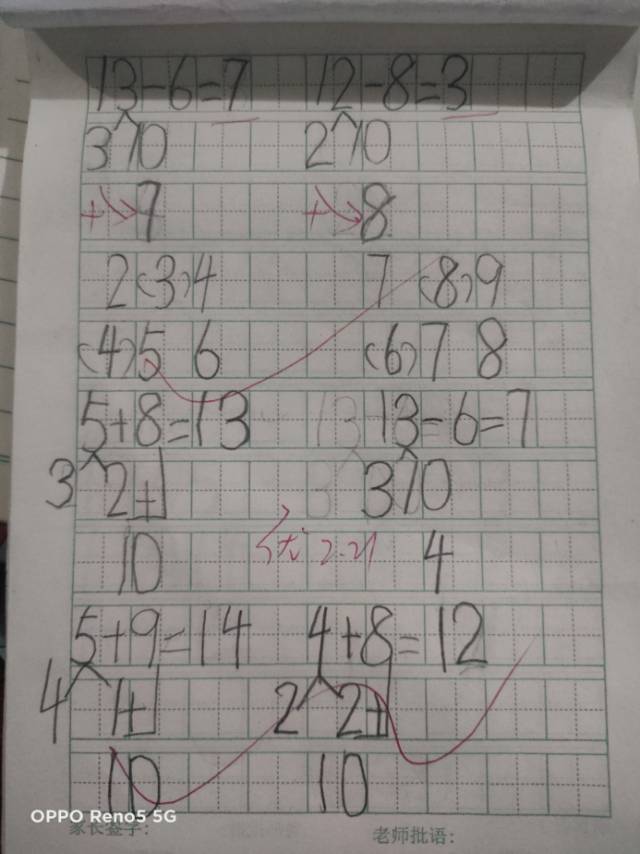 13-6=7 12-8=3
3 10 2 10
7 8
2(3)4 7(8)9
(4)5 6 (6)7 8
5+8=13 13-6=7
3 2 3 10
10 优 2.21 4
5+9=14 4+8=12
4 1 2 2
10 10
OPPO Reno5 5G
家长签字: 老师批语: